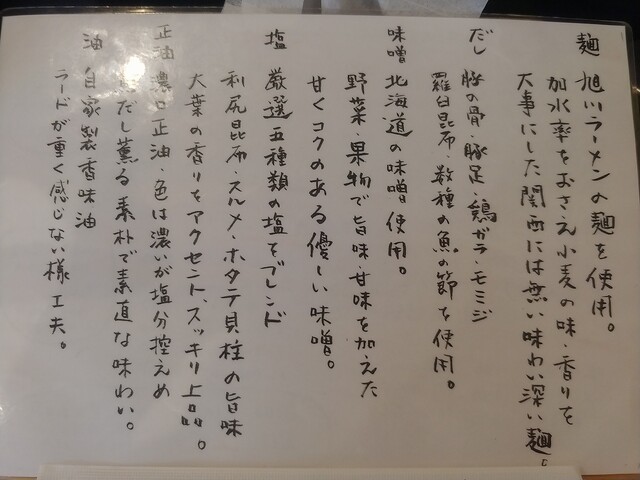 麺 旭川ラーメンの麺を使用。
加水率をおさえ小麦の味・香りを
大事にした関西には無い味わい深い麺。
だし 豚の骨・豚足・鶏ガラ・モミジ
羅臼昆布・数種の魚の節を使用。
味噌 北海道の味噌使用。
野菜・果物で旨味・甘味を加えた
甘くコクのある優しい味噌。
塩 厳選五種類の塩をブレンド
利尻昆布・スルメ・ホタテ貝柱の旨味
大葉の香りをアクセント、スッキリ上品。
正油 濃口正油・色は濃いが塩分控えめ
だし薫る素朴で素直な味わい。
油 自家製香味油
ラードが重く感じない様工夫。